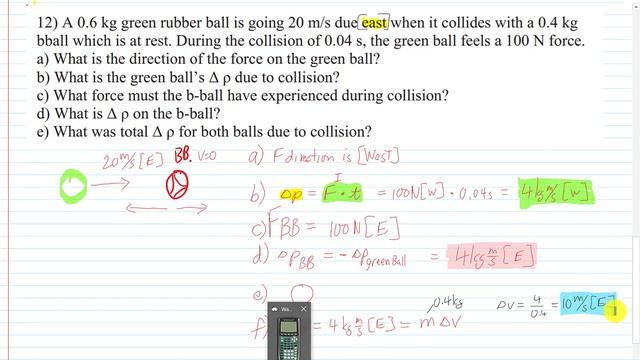 12) A 0.6 kg green rubber ball is going 20 m/s due east when it collides with a 0.4 kg
bball which is at rest. During the collision of 0.04 s, the green ball feels a 100 N force.
a) What is the direction of the force on the green ball?
b) What is the green ball's Δ ρ due to collision?
c) What force must the b-ball have experienced during collision?
d) What is Δ ρ on the b-ball?
e) What was total Δ ρ for both balls due to collision?
20 m/s [E] BB. v=0
a) F direction is [West]
I
b) Δp = F • t = 100N[W] • 0.04s = 4 kg m/s [W]
c) FBB = 100N[E]
d) ΔpBB = -Δp green Ball = 4 kg m/s [E]
e)
0.4kg
f) = 4 kg m/s [E] = m ΔV
ΔV = 4/0.4 = 10 m/s [E]
Wa...